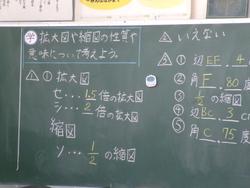 学 拡大図や縮図の性質や
意味について考えよう。
△1 ① 拡大図
セ… 1.5 倍の拡大図
シ… 2 倍の拡大図
縮図
ソ… 1/2 の縮図
△ いえない
② ① 辺EF … 4
② 角 F . 80度
③ 1/2 の縮図
④ 辺BC 3 c
⑤ 角C . 75度